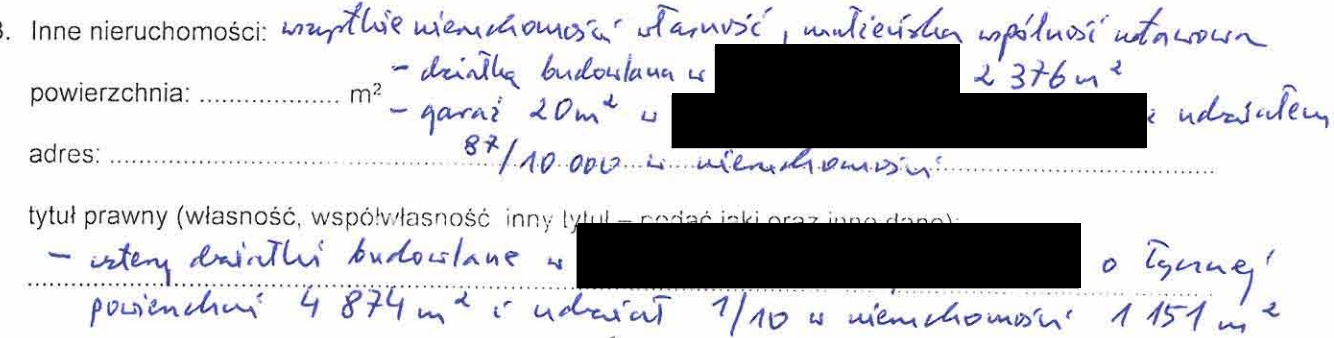 3. Inne nieruchomości: wszystkie nieruchomości własność, małżeńska wspólność ustawowa
- działka budowlana w 2 376 m²
powierzchnia: .................. m²
- garaż 20m² w z udziałem
adres: 87/10 000 w nieruchomości
tytuł prawny (własność, współwłasność inny tytuł – podać jaki oraz inne dane):
- cztery działki budowlane w o łącznej
powierzchni 4 874 m² i udział 1/10 w nieruchomości 1 151 m²